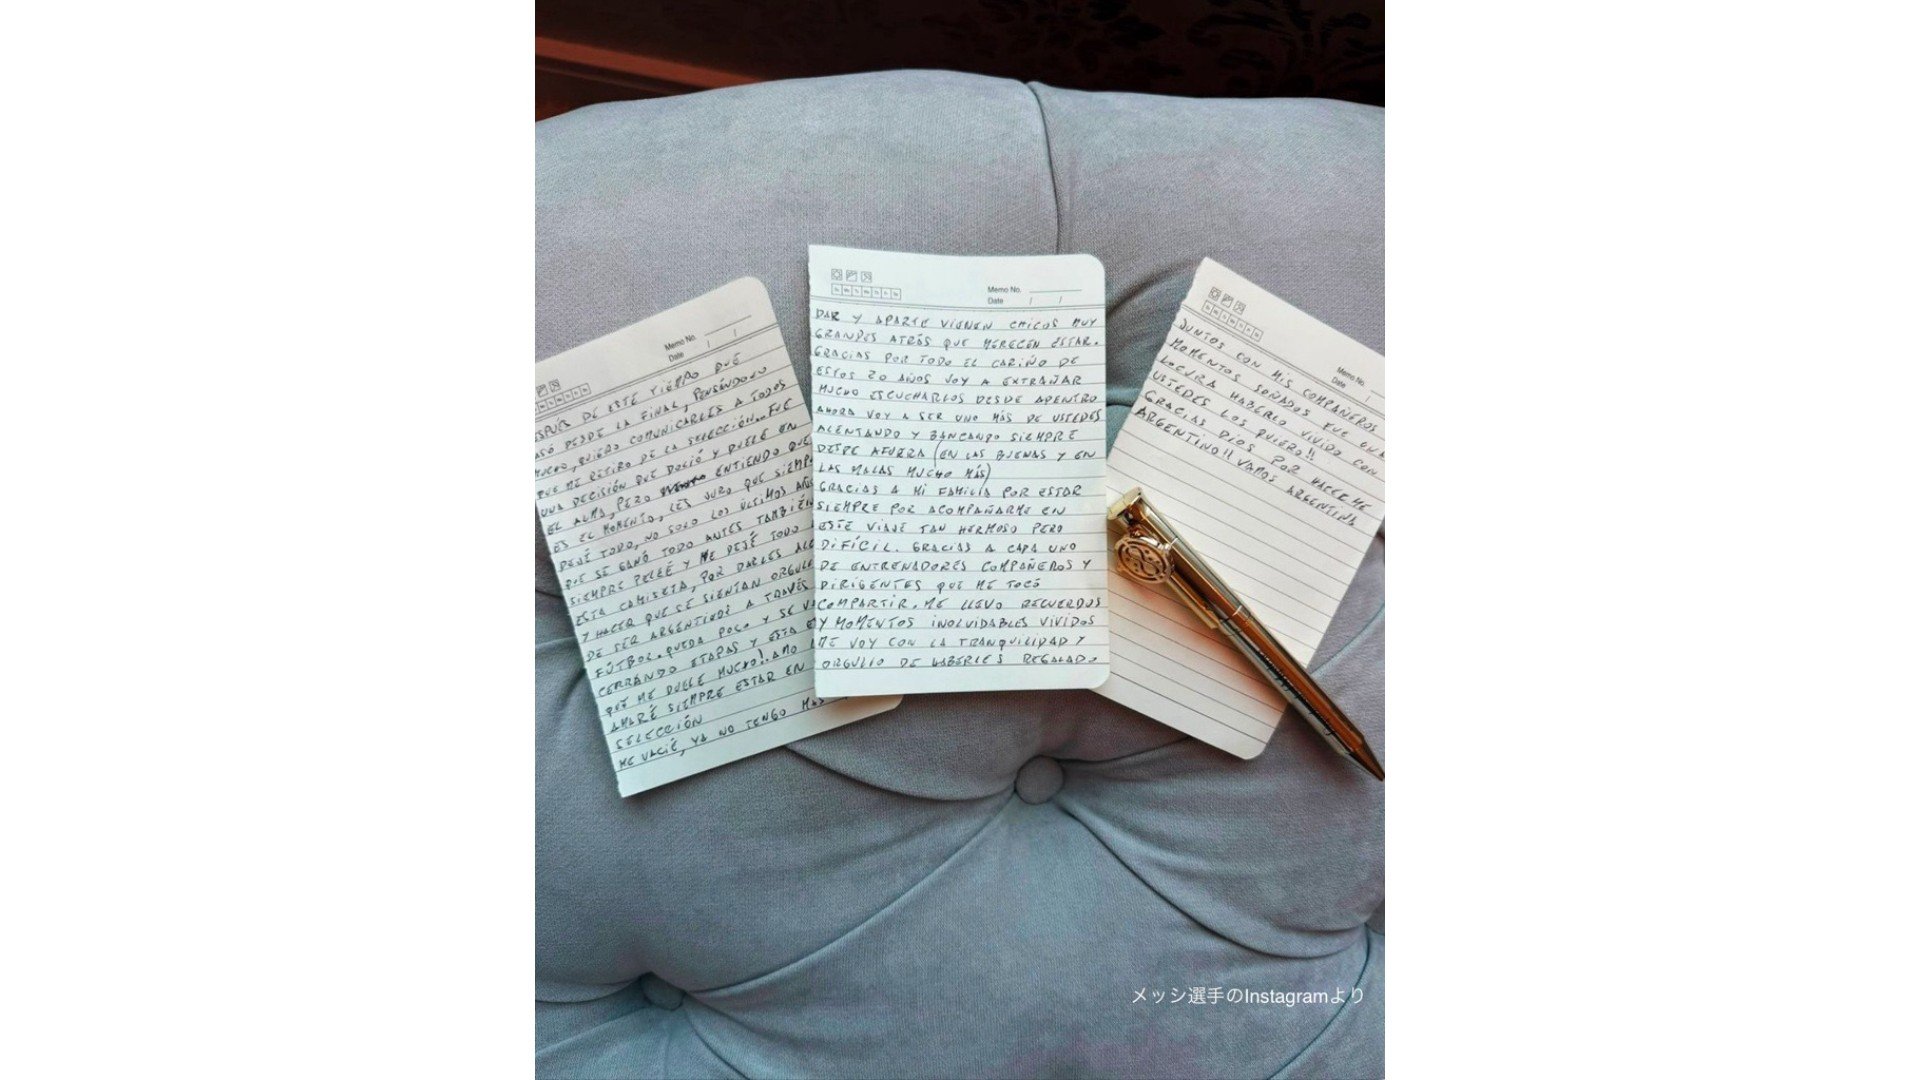 Memo No.
Date / /
SPUÉS DE ESTE TIEMPO QUE
ASÓ DESDE LA FINAL, PENSÁNDOLO
MUCHO, QUIERO COMUNICARLES A TODOS
QUE MI RETIRO DE LA SELECCIÓN.. FUE
UNA DECISIÓN QUE DOLIÓ Y DUELE EN
EL ALMA, PERO ENTIENDO QUE
ES EL MOMENTO, LES JURO QUE SIEMP
DEJÉ TODO, NO SOLO LOS ÚLTIMOS AÑO
QUE SE GANÓ TODO ANTES TAMBIÉN
SIEMPRE PELEÉ Y ME DEJÉ TODO
ESTA CAMISETA, POR DARLES ALE
Y HACER QUE SE SIENTAN ORGULL
DE SER ARGENTINOS A TRAVÉS
FÚTBOL. QUEDA POCO Y SE V
CERRANDO ETAPAS Y ESTA E
QUE ME DUELE MUCHO!! AMO
AMARÉ SIEMPRE ESTAR EN
SELECCIÓN
ME VACIÉ, YA NO TENGO MÁS
Memo No.
Date / /
DAR Y APARTE VIENEN CHICOS MUY
GRANDES ATRÁS QUE MERECEN ESTAR.
GRACIAS POR TODO EL CARIÑO DE
ESTOS 20 AÑOS VOY A EXTRAÑAR
MUCHO ESCUCHARLOS DESDE ADENTRO
AHORA VOY A SER UNO MÁS DE USTEDES
ALENTANDO Y BANCANDO SIEMPRE
DESDE AFUERA (EN LAS BUENAS Y EN
LAS MALAS MUCHO MÁS)
GRACIAS A MI FAMILIA POR ESTAR
SIEMPRE POR ACOMPAÑARME EN
ESTE VIAJE TAN HERMOSO PERO
DIFÍCIL. GRACIAS A CADA UNO
DE ENTRENADORES COMPAÑEROS Y
DIRIGENTES QUE ME TOCÓ
COMPARTIR. ME LLEVO RECUERDOS
Y MOMENTOS INOLVIDABLES VIVIDOS
ME VOY CON LA TRANQUILIDAD Y
ORGULLO DE HABERLES REGALADO
Memo No.
Date /
JUNTOS CON MIS COMPAÑEROS
MOMENTOS SOÑADOS FUE UNA
LOCURA HABERLO VIVIDO CON
USTEDES LOS QUIERO!!
GRACIAS DIOS POR HACERME
ARGENTINO!! VAMOS ARGENTINA
メッシ選手のInstagramより